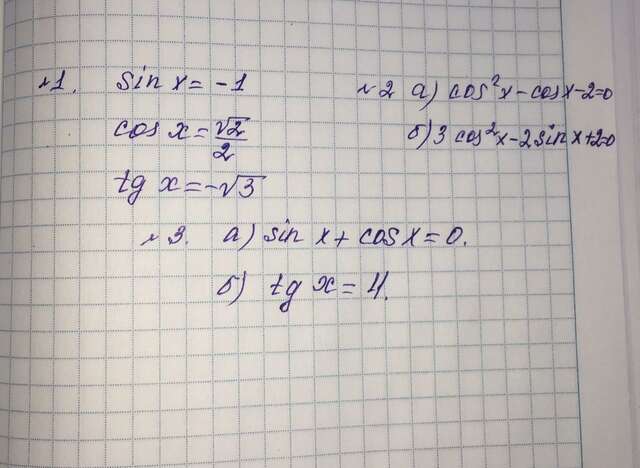 №1. sin x = -1
cos x = √2/2
tg x = -√3
№2 а) cos²x - cos x - 2 = 0
б) 3 cos²x - 2 sin x + 2 = 0
№3. а) sin x + cos x = 0.
б) tg x = 4.